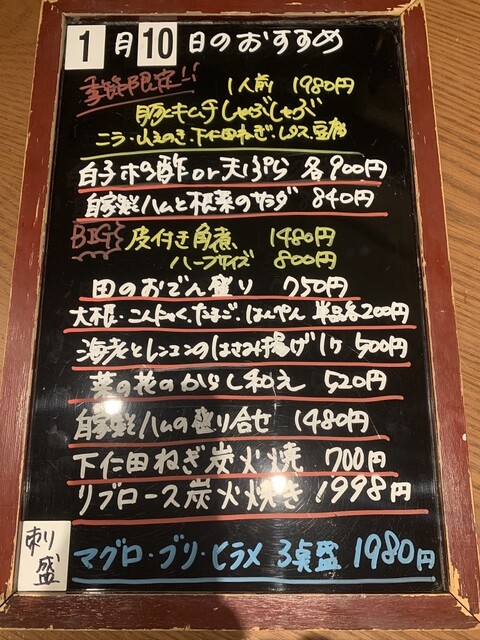 1月10日のおすすめ
季節限定!! 1人前 1980円
豚キムチしゃぶしゃぶ
ニラ・えのき・下仁田ねぎ・レタス・豆腐
白子ポン酢or天ぷら 各900円
自家製ハムと根菜のサラダ 840円
BIG 皮付き角煮 1480円
ハーフサイズ 800円
田のおでん盛り 750円
大根・こんにゃく・たまご・はんぺん 単品各200円
海老とレンコンのはさみ揚げ 1ヶ 500円
菜の花のからし和え 520円
自家製ハムの盛り合せ 1480円
下仁田ねぎ炭火焼 700円
リブロース炭火焼き 1998円
刺盛
マグロ・ブリ・ヒラメ 3点盛 1980円